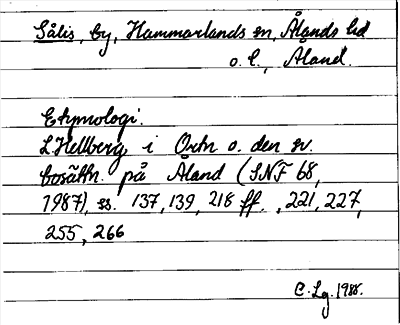 Sålis, by, Hammarlands sn, Ålands hd
o. l., Åland.
Etymologi:
L Hellberg i Ortn o. den sv.
bosättn. på Åland (SNF 68,
1987), ss. 137, 139, 218 ff., 221, 227,
255, 266
C. Lg. 1988.